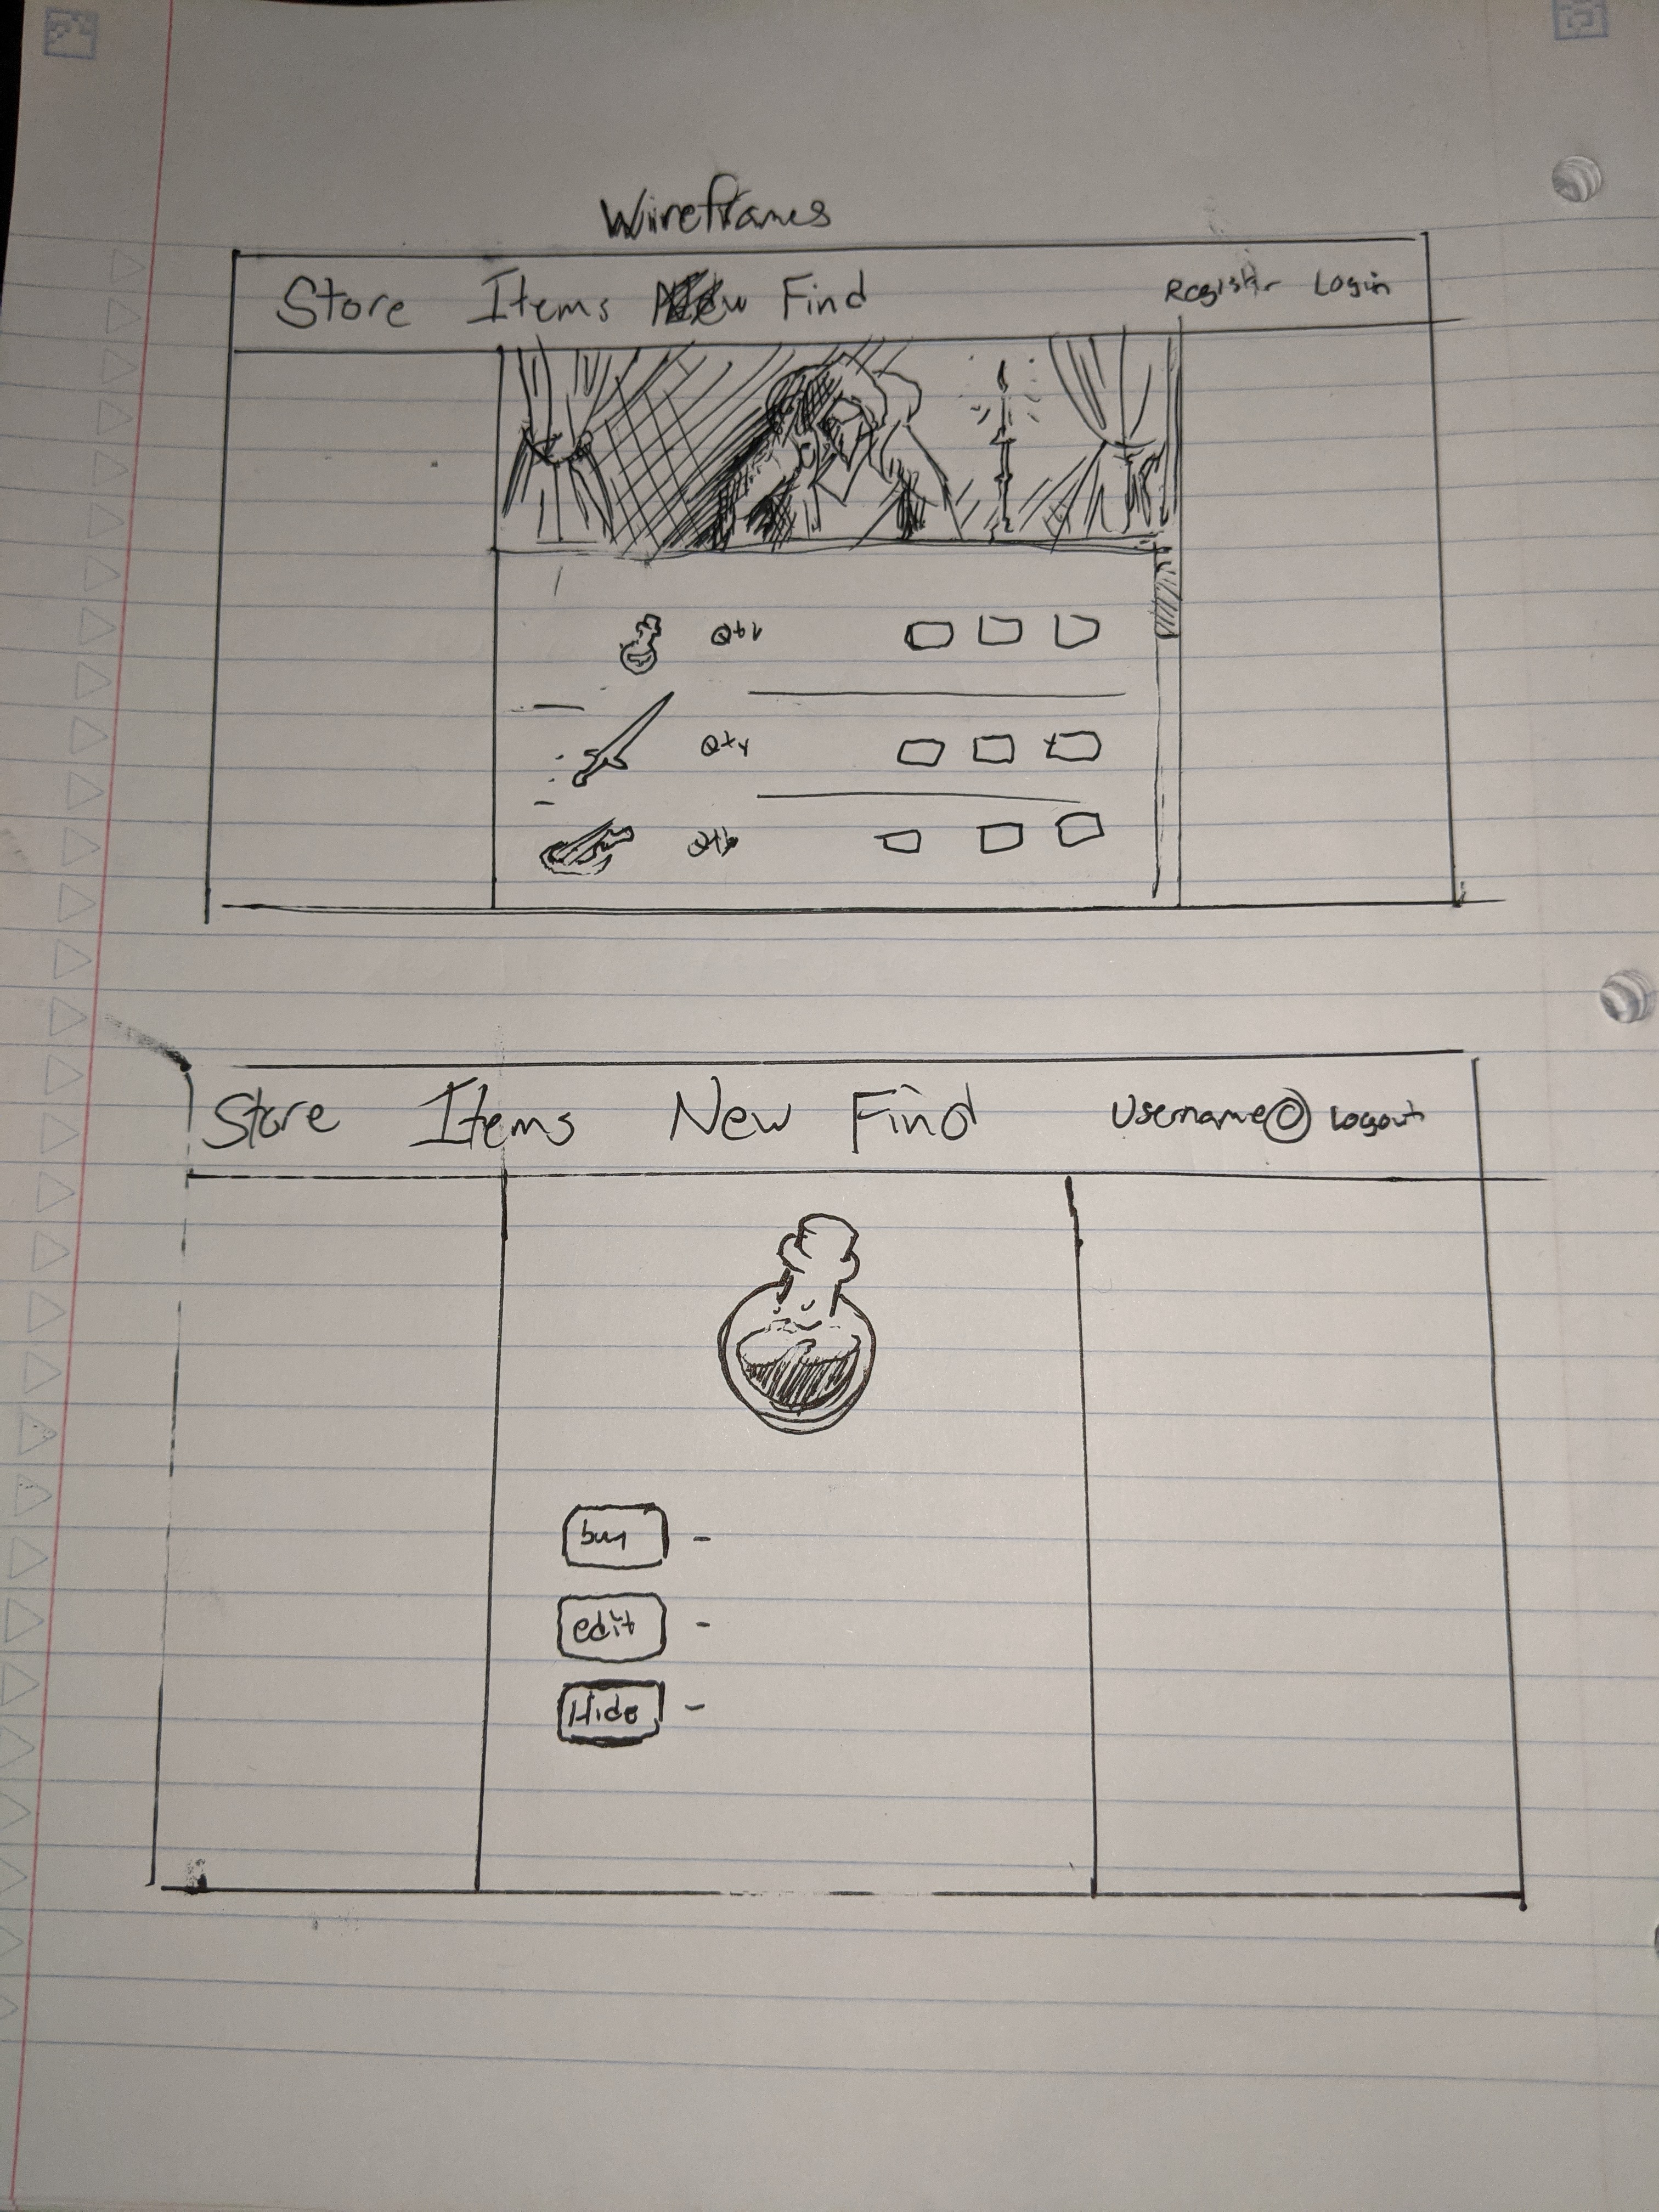 Wireframes
Store Items New Find Register Login
Qty
Qty
Qty
Store Items New Find Username Logout
buy -
edit -
Hide -